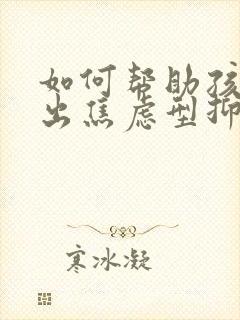 如何帮助孩
出焦虑型抑
寒冰凝